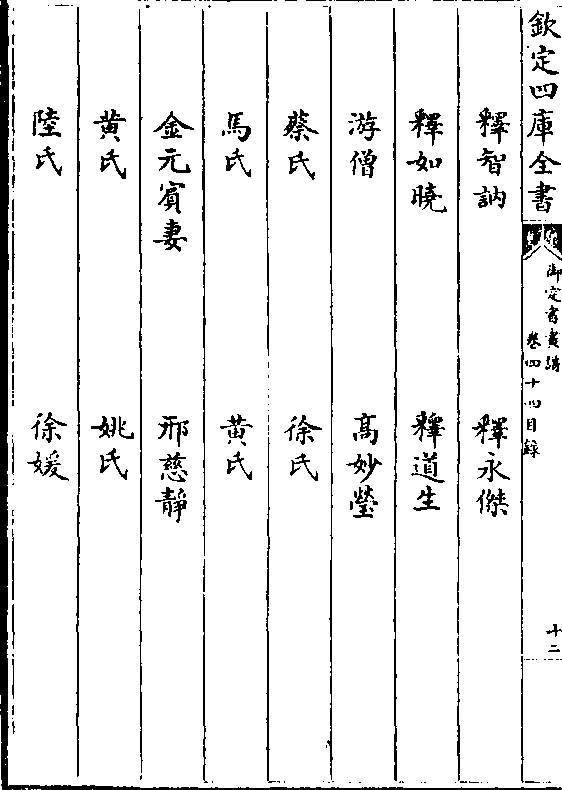 欽定四庫全書
御定書畫譜
卷四十四目録
十二
釋智訥 釋永傑
釋如曉 釋道生
游僧 高妙瑩
蔡氏 徐氏
馬氏 黄氏
金元賓妻 邢慈靜
黄氏 姚氏
陸氏 徐媛